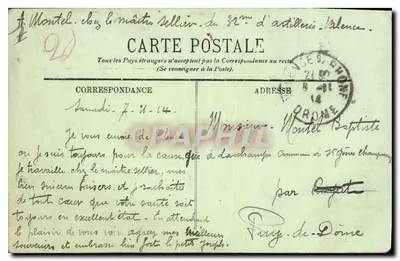 A. Montel chez le maître sellier du 32me d'artillerie Valence
20
CARTE POSTALE
Tous les Pays étrangers n'acceptent pas la Correspondance au recto
(Se renseigner à la Poste).
CORRESPONDANCE
ADRESSE
RHONE
14
DROME
Samedi 7-11-14
Je vous envoie de
Monsieur Montel Baptiste
ou je suis toujours pour la cause que
je travaille chez le maître sellier, mes
bien sincères baisers, et je souhaite
de tout cœur que votre santé soit
toujours en excellent état. En attendant
le plaisir de vous voir agréez mes meilleurs
souvenirs et embrasse bien fort le petit Joseph.
par
Puy-de-Dôme
CPAPHIL.COM